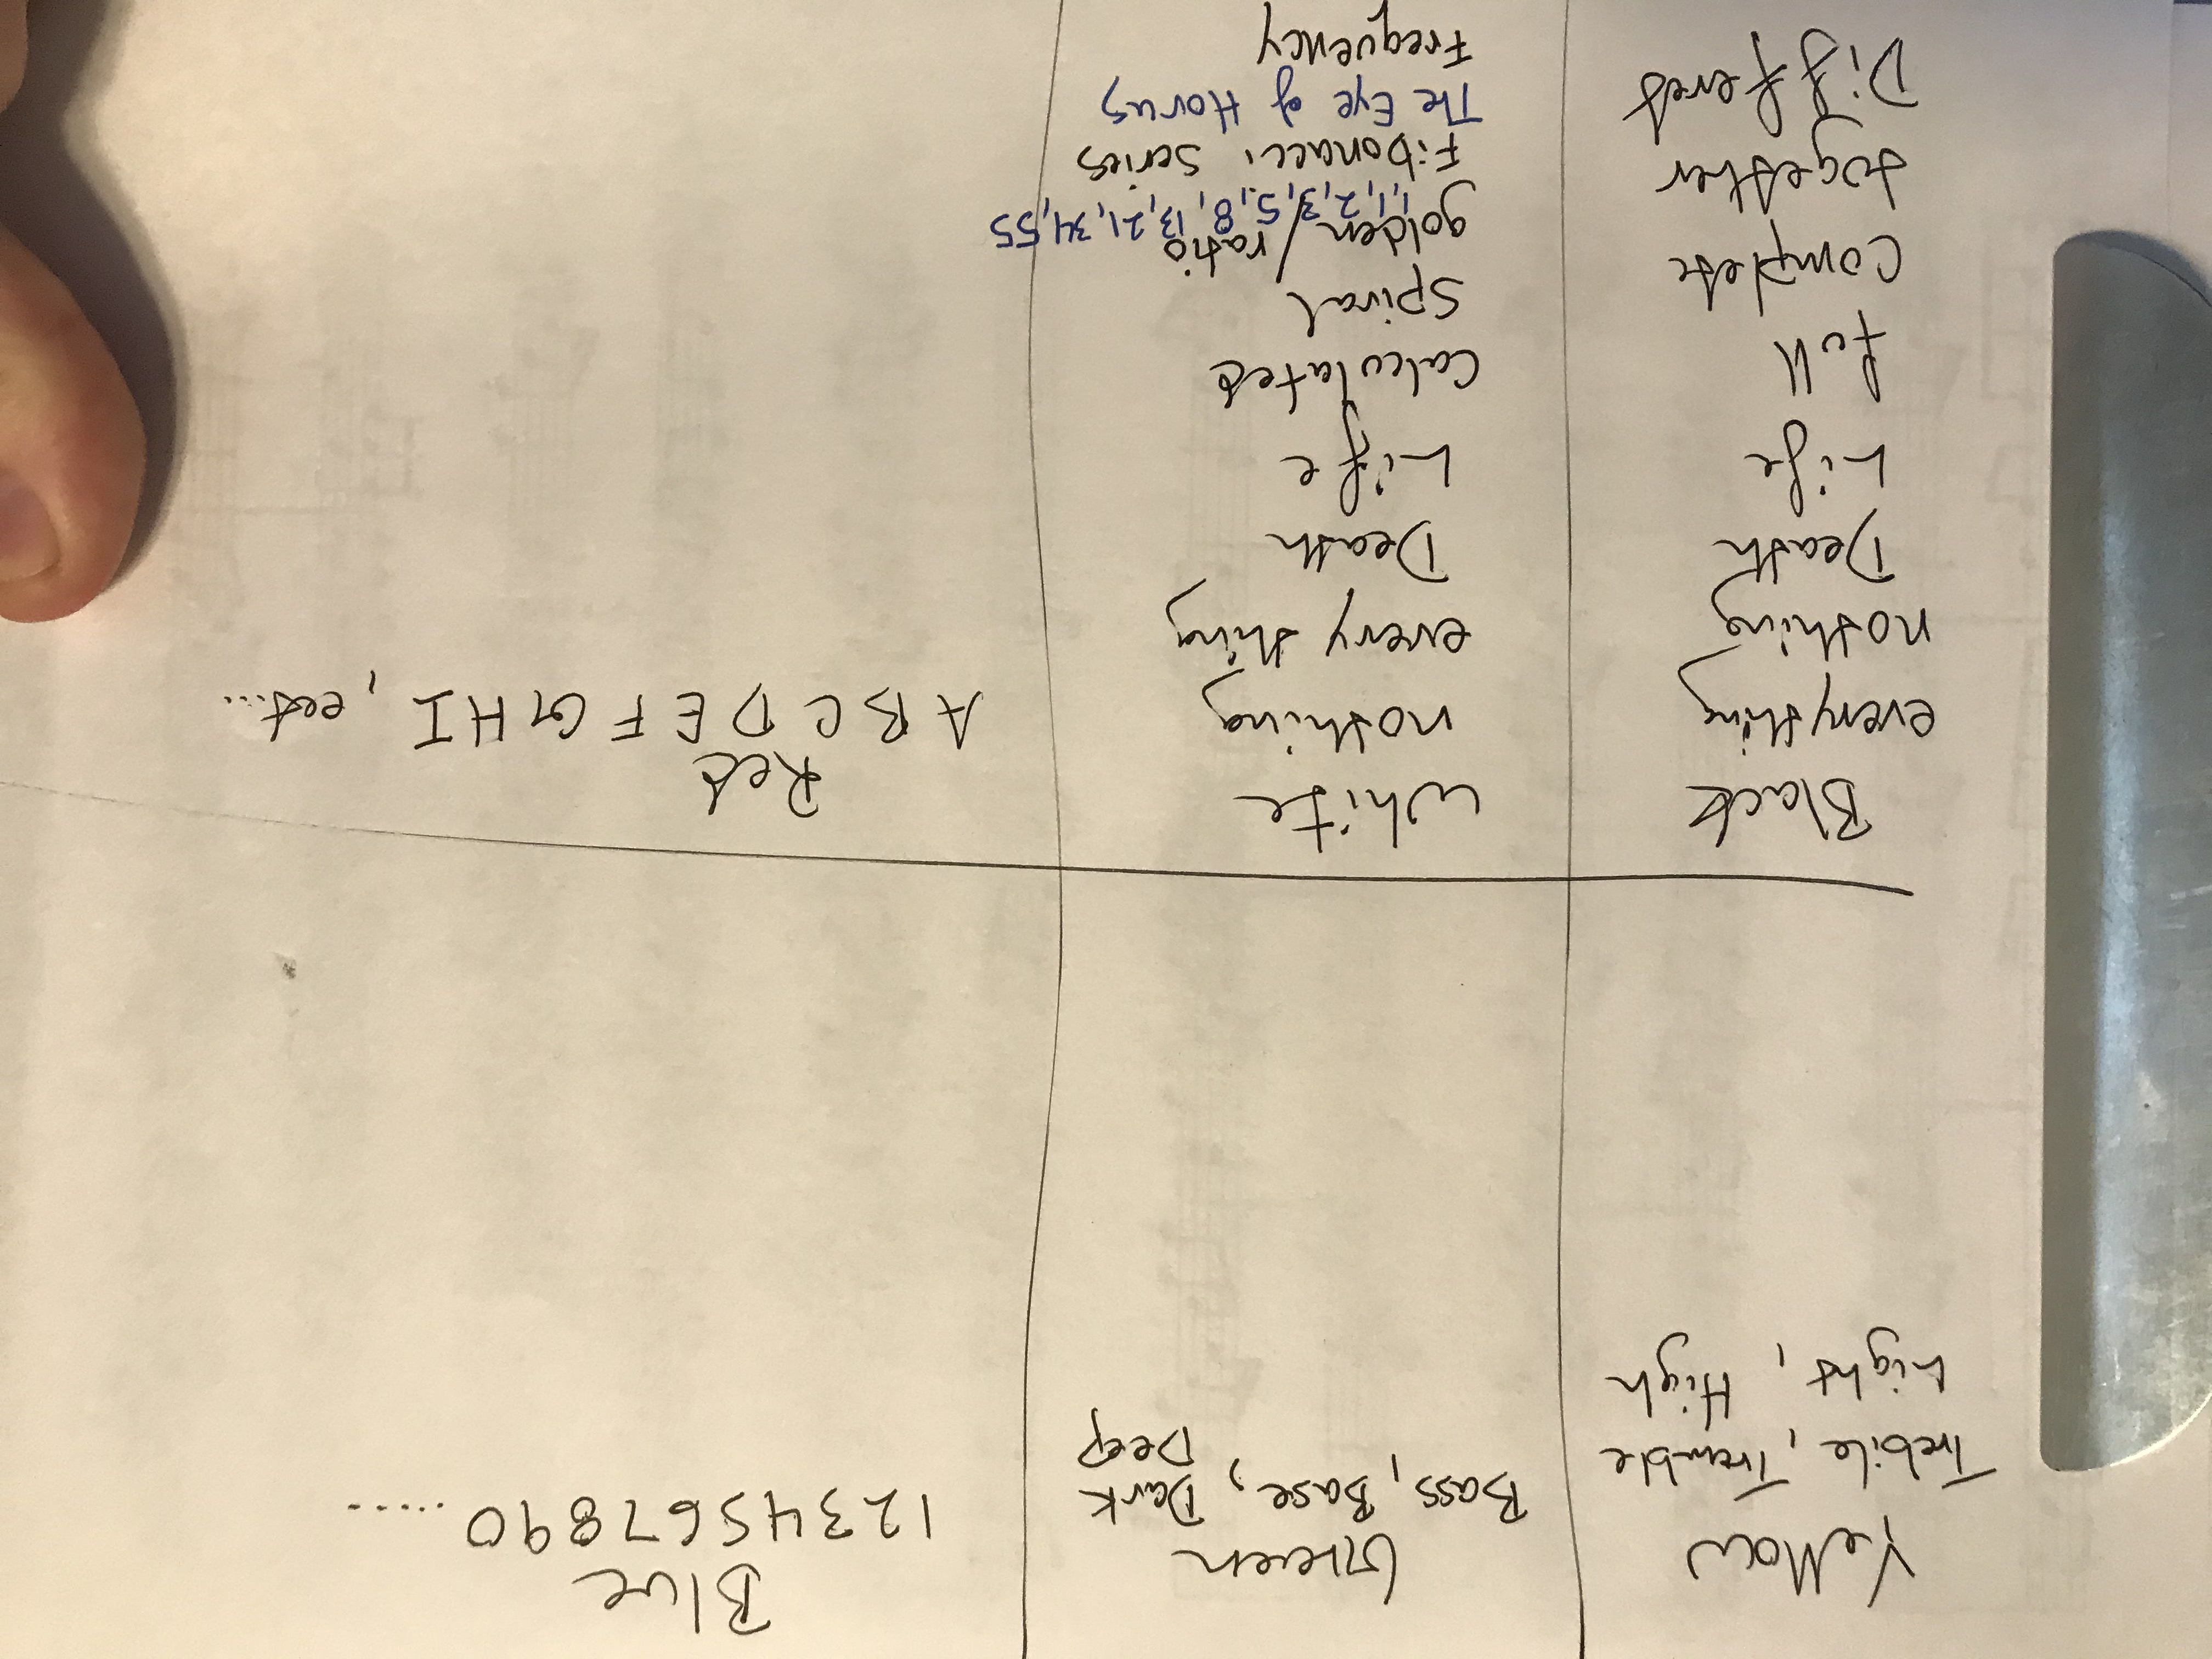 Yellow
Trebile, Tremble
Light, High
Green
Bass, Base, Dark
Deep
Blue
1234567890.....
Black
everything
nothing
Death
Life
full
complete
together
Differet
White
nothing
every thing
Death
Life
Calculated
Spiral
golden/ratio
1,1,2,3,5,8,13,21,34,55
Fibonacci Series
The Eye of Horus
Frequency
Red
A B C D E F G H I, ect...